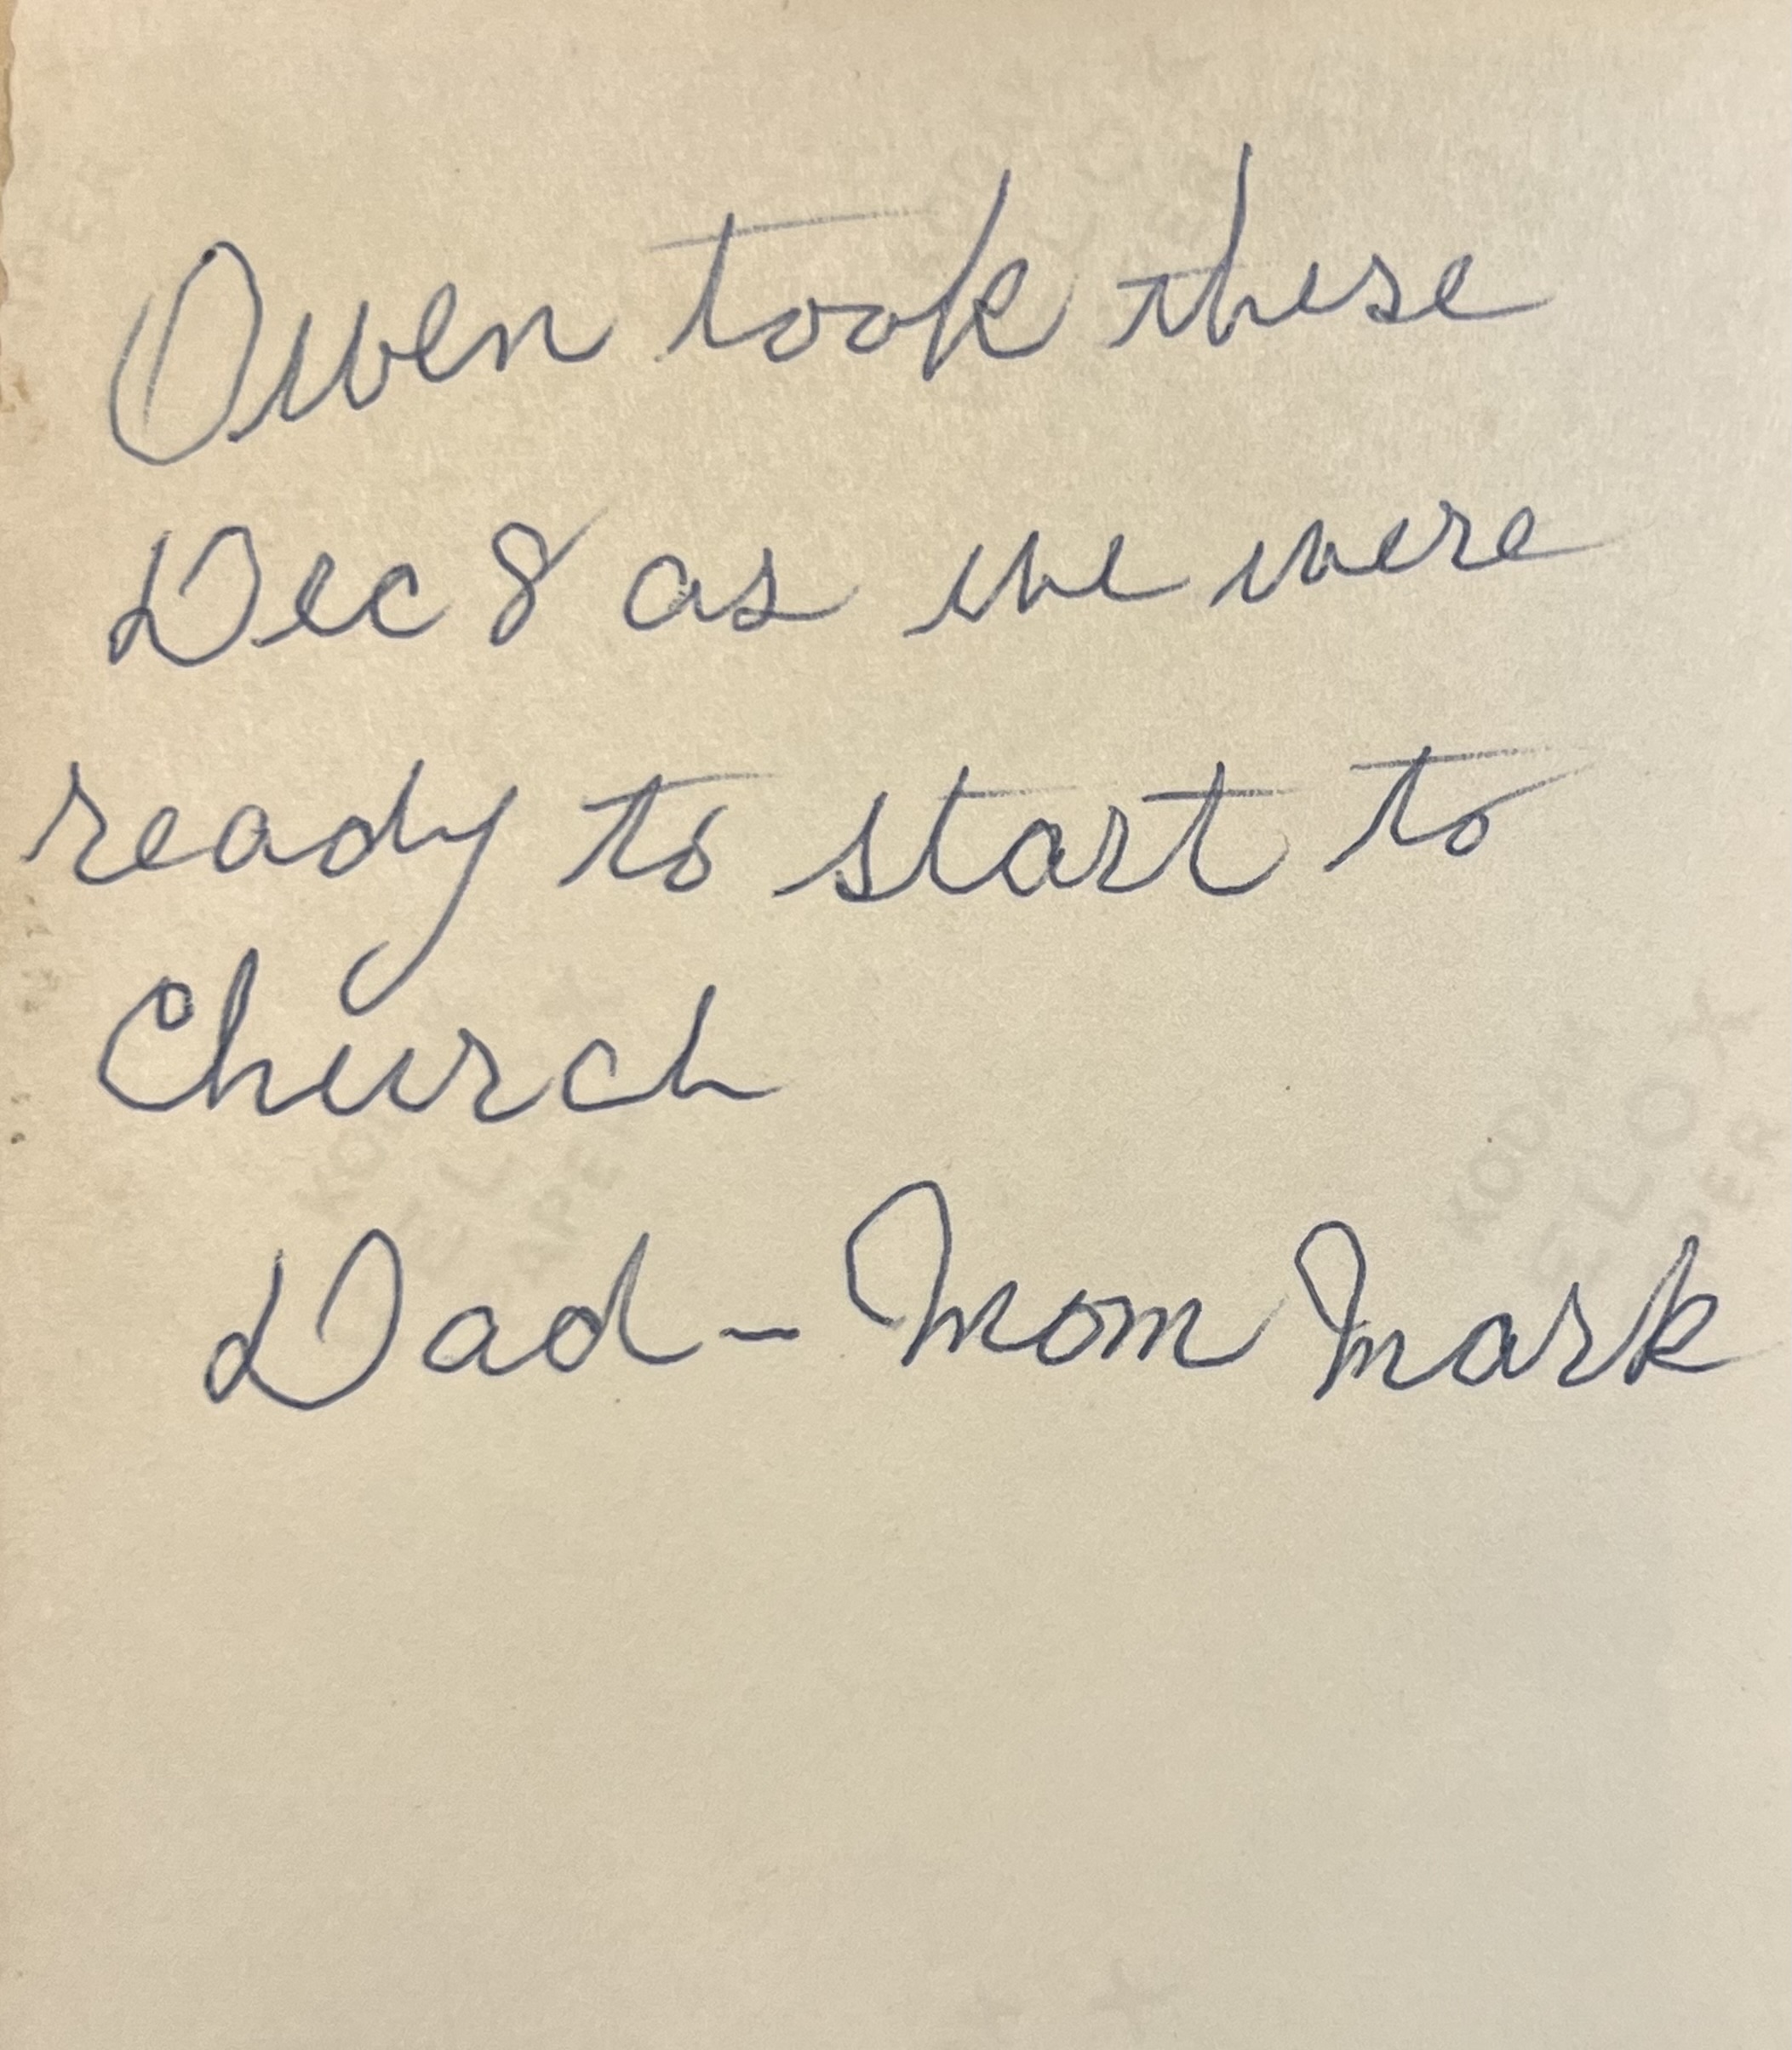 Owen took these
Dec 8 as we were
ready to start to
Church
KODAK
VELOX
PAPER
Dad - Mom Mark